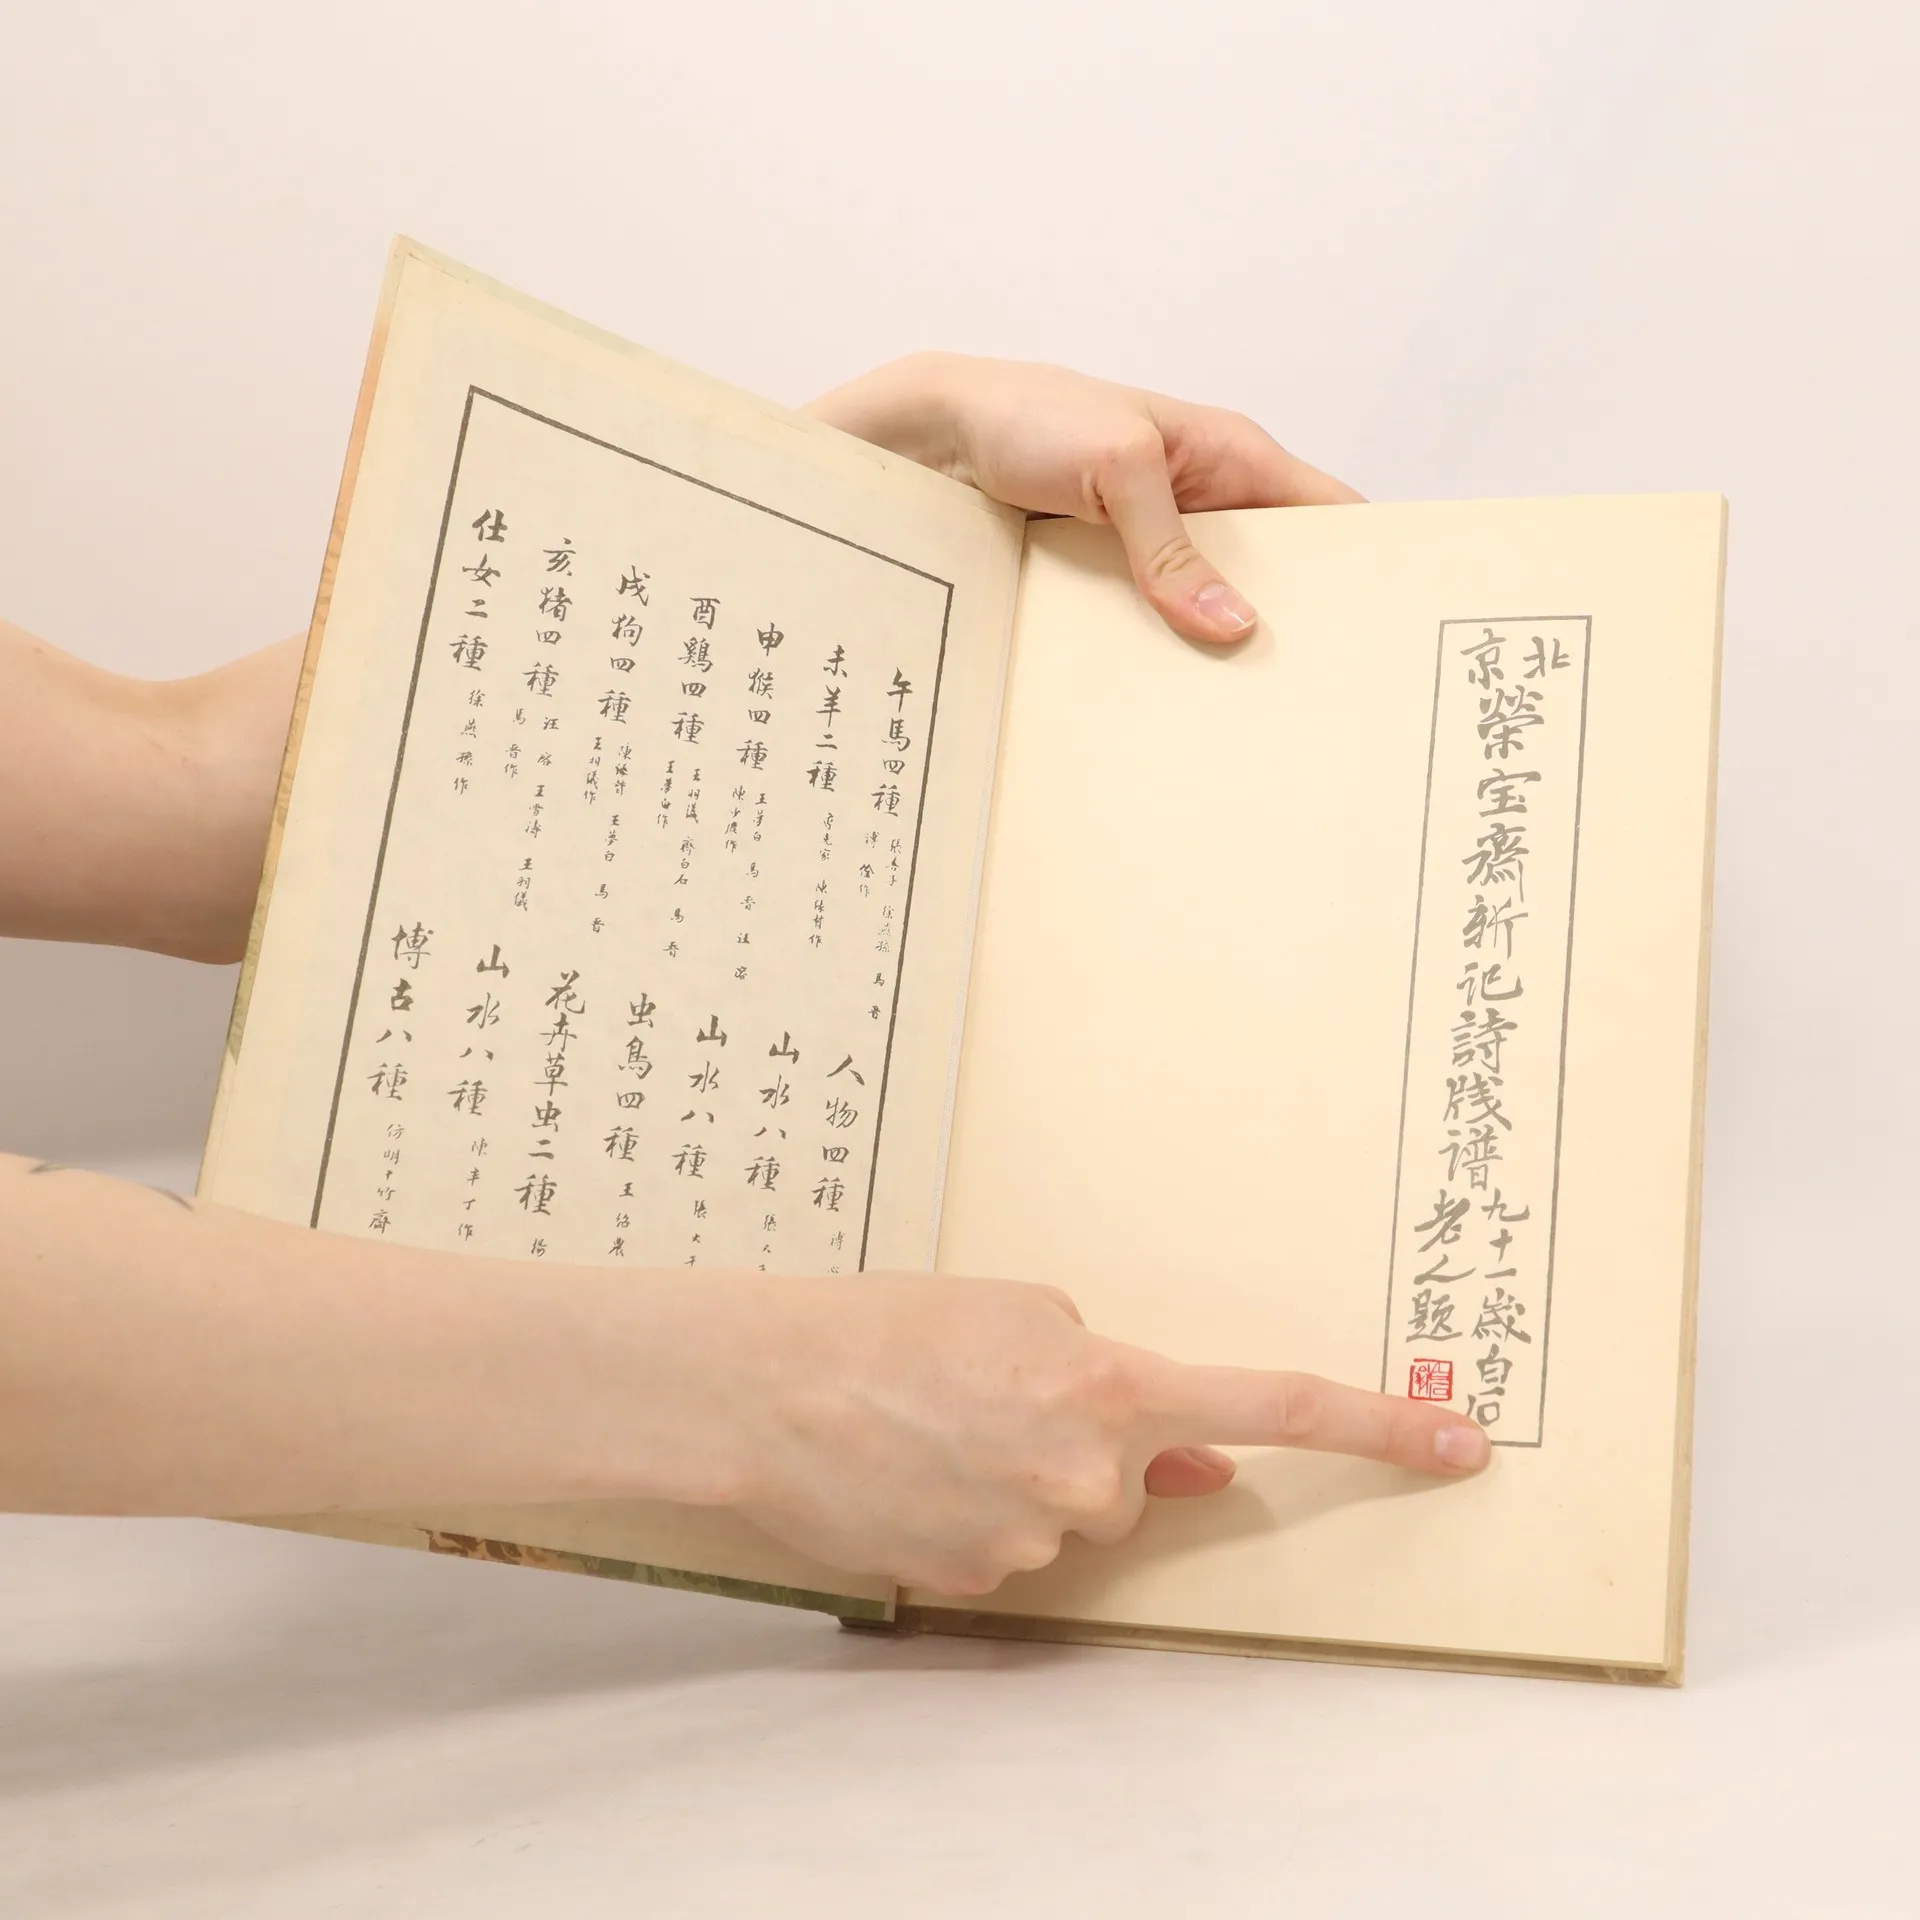 北京榮宝齋新记詩牋谱
九十一歲白石
老人題
午馬四種 張善子 徐燕孫 馬晋
溥佺作
未羊二種
申猴四種 王夢白 馬晋 汪溶
陳少鹿作
酉鷄四種 王羽儀 齊白石 馬晋
王夢白作
戌狗四種 陳緣督 王夢白 馬晋
王羽儀作
亥猪四種 汪溶 王雪濤 王羽儀
馬晋作
仕女二種 徐燕孫作
人物四種 溥心
山水八種 張大千
山水八種 張大千
虫鳥四種
花卉草虫二種 楊
山水八種 陳半丁作
博古八種 仿明十竹齋